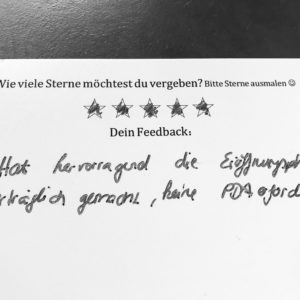 Wie viele Sterne möchtest du vergeben? Bitte Sterne ausmalen ☺
Dein Feedback:
Hat hervorragend die Eröffnungsph
erträglich gemacht, keine PDA